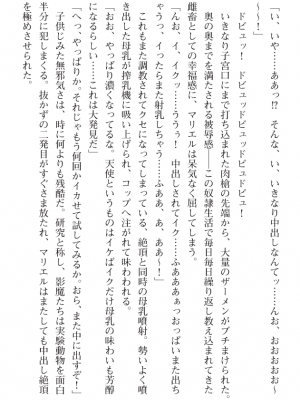 「い、いや……ああっ？　そんな、い、いきなり中出しなんてッ……んお、おおおおお
～～～！」
　ドピュッ！　ドピュッドピュドピュ！
　いきなり子宮口にまで打ち込まれた肉槍の先端から、大量のザーメンがブチまけられた。
奥の奥までを満たされる被辱感――この奴隷生活で毎日毎日繰り返し教え込まれてきた
雌畜としての幸福感に、マリエルは呆気なく屈してしまう。
「んおぉ、イ、イクッ……うぅぅ！　中出しされてイク……ふああああぁっおっぱいまた出ち
ゃうっ、イったらまた射乳しちゃう……ふああ、あ、あーっ！」
　これもまた調教されてクセになってしまっている、絶頂と同時の母乳噴射。勢いよく噴
き出した母乳が搾乳機に吸い上げられ、コップへ注がれて味わわれる。
「おお、やっぱり濃くなってるな。天使というものはイケばイクだけ母乳の味わいも芳醇
になるらしい……これは大発見だ」
「へっ、やっぱりか。それじゃもう何回かイカせて試してみるか。おら、また中に出すぞ！」
　子供じみた無邪気さは、時に何よりも残酷だ。研究と称し、影魔たちは実験動物を面白
半分に犯しまくる。抜かずの二発目がすぐさま放たれ、マリエルはまたしても中出し絶頂
を極めさせられた。